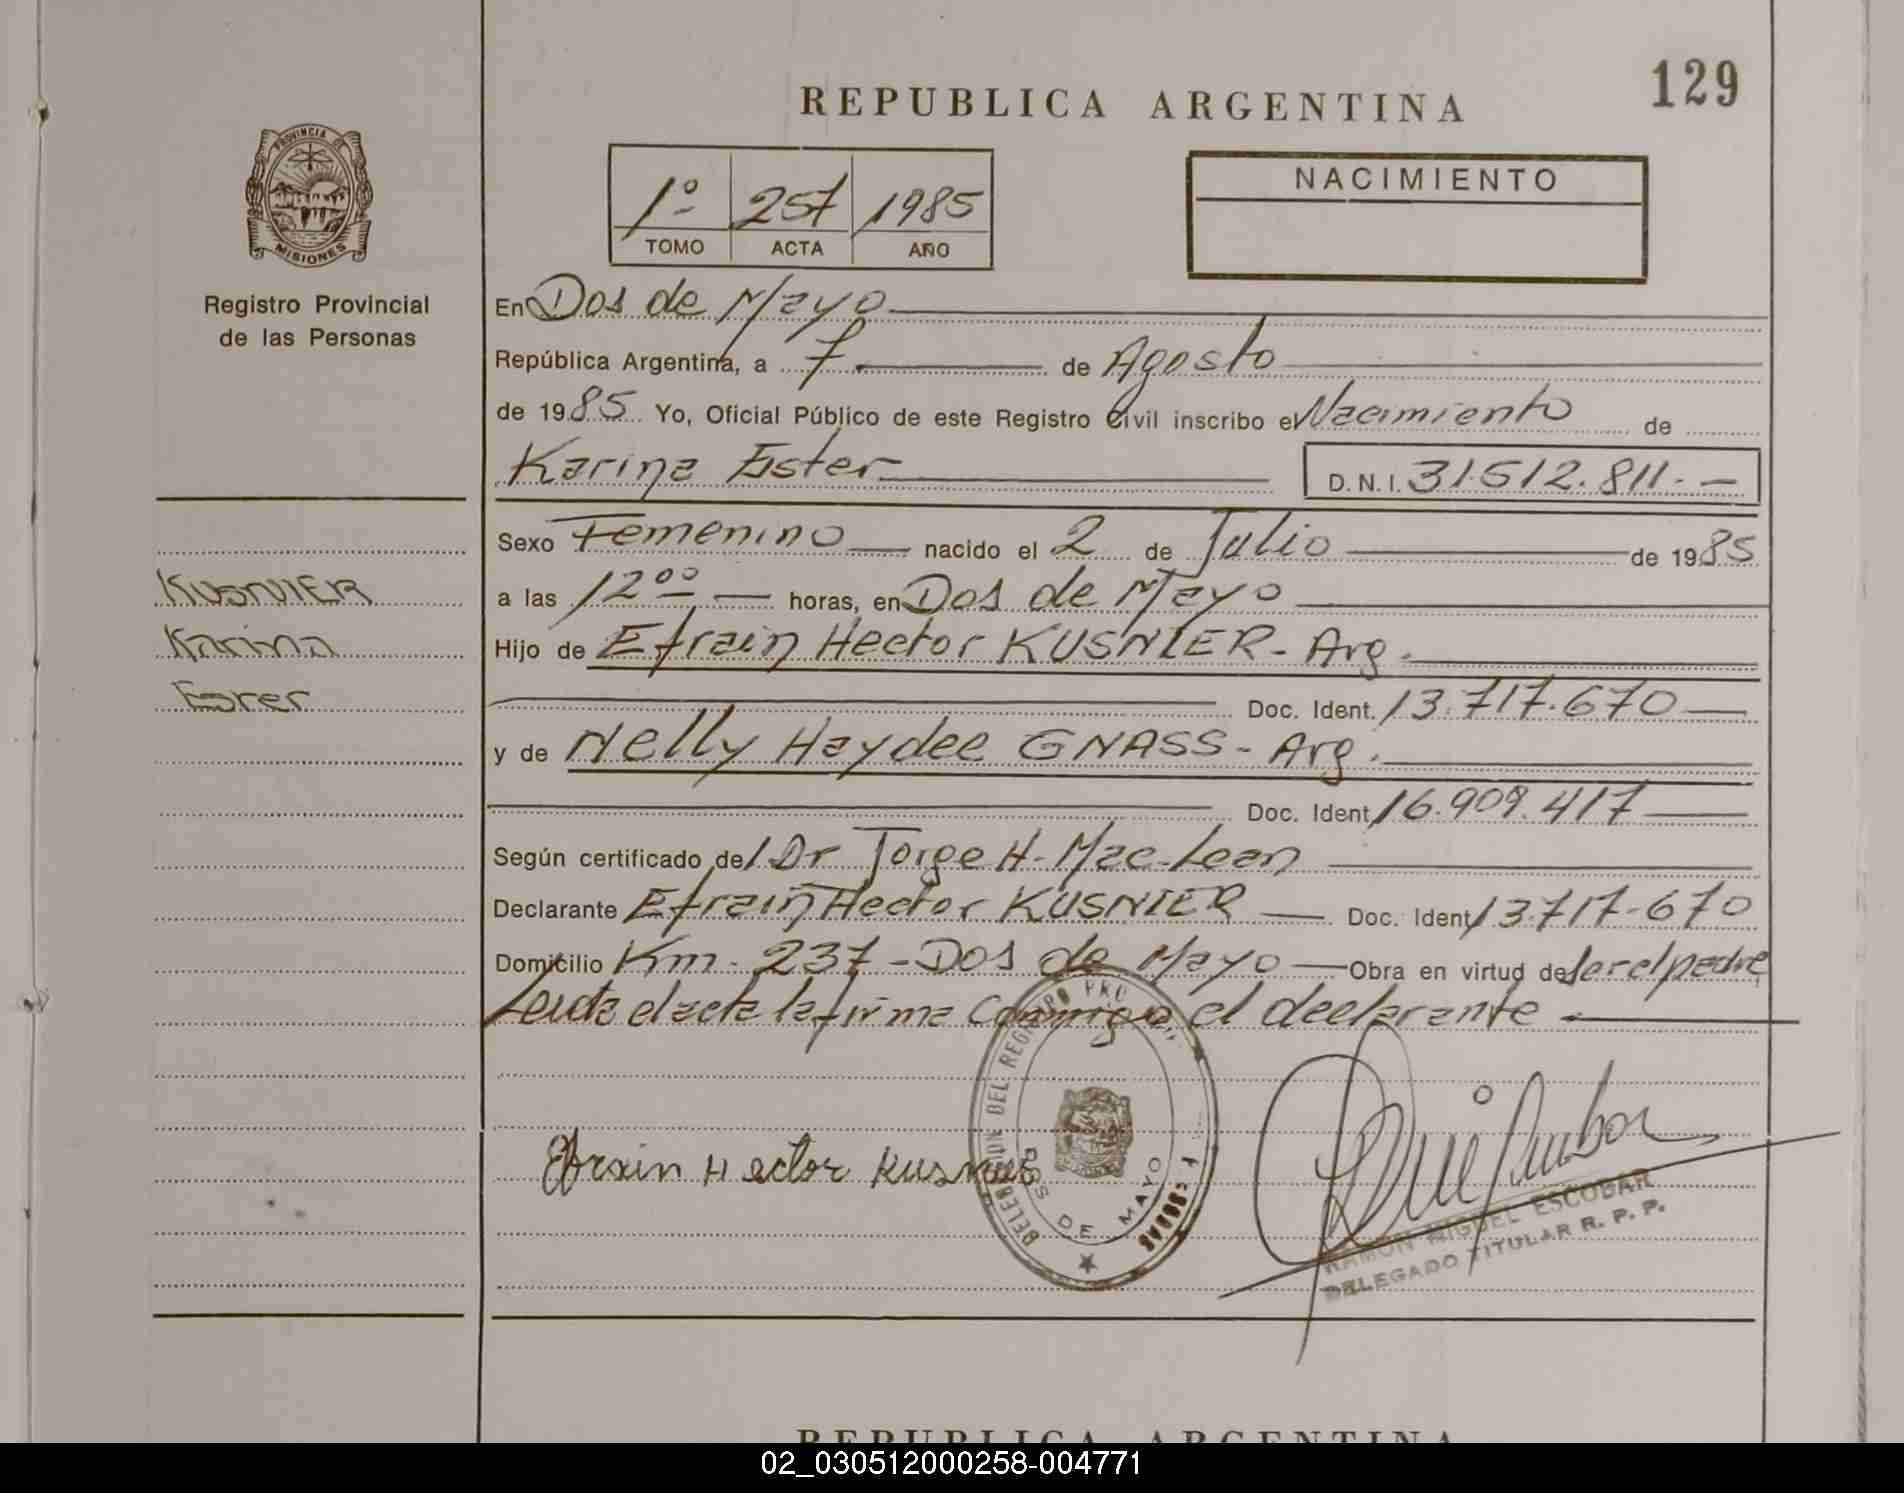 129
REPUBLICA ARGENTINA
PROVINCIA DE
MISIONES
Registro Provincial
de las Personas
1º 257 1985
TOMO ACTA AÑO
NACIMIENTO
En Dos de Mayo
República Argentina, a 7 de Agosto
de 1985 Yo, Oficial Público de este Registro Civil inscribo el Nacimiento de
Karina Ester D.N.I. 31.512.811.-
KUSNIER
Karina
Ester
Sexo Femenino nacido el 2 de Julio de 1985
a las 12 00 horas, en Dos de Mayo
Hijo de Efrain Hector KUSNIER - Arg.
Doc. Ident. 13.717.670
y de Nelly Haydee GNASS - Arg.
Doc. Ident. 16.909.417
Según certificado del Dr Jorge H. Mac-Lean
Declarante Efrain Hector KUSNIER Doc. Ident. 13.717.670
Domicilio Km. 237 - Dos de Mayo Obra en virtud de ser el padre
Leida el acta la firma conmigo el declarante
Efrain Hector Kusnier
DELEGACION DEL REGISTRO PRO
DOS DE MAYO
RAMON MIGUEL ESCOBAR
DELEGADO TITULAR R. P. P.
REPUBLICA ARGENTINA
02_030512000258-004771